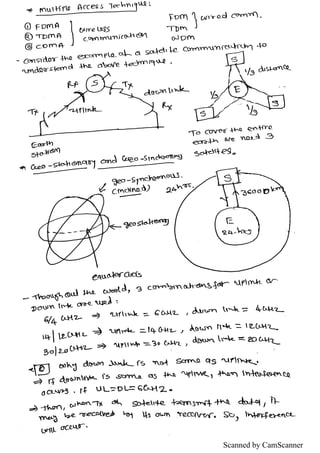 * Multiple Access Technique:
① FDMA
② TDMA
③ CDMA
wireless
communication
FDM
TDM
WDM
wired comm.
- consider the example of a satellite communication to
understand the above technique.
S
Rx
Tx
uplink
downlink
Tx
Rx
Earth
station
S
1/3 distance
1/3
E
1/3
S
S
To cover the entire
earth we need 3
satellites.
* Geo-stationary and Geo-Synchronous
geo-synchronous
(inclined)
24 hrs.
geostationary
equator
S
36000 km
E
24-hrs
- Throughout the world, 3 combinations for uplink or
Down link are used:
6/4 GHz ⇒ uplink = 6GHz, down link = 4GHz
14/12GHz ⇒ uplink = 14GHz, down link = 12GHz
30/20GHz ⇒ uplink = 30GHz, down link = 20GHz
* Q why down link is not same as uplink.
⇒ If downlink is same as the uplink, then interference
occurs. If UL=DL=6GHz.
⇒ Then, when Tx of satellite transmit the data, it
may be received by its own receiver. So, Interference
will occur.
Scanned by CamScanner